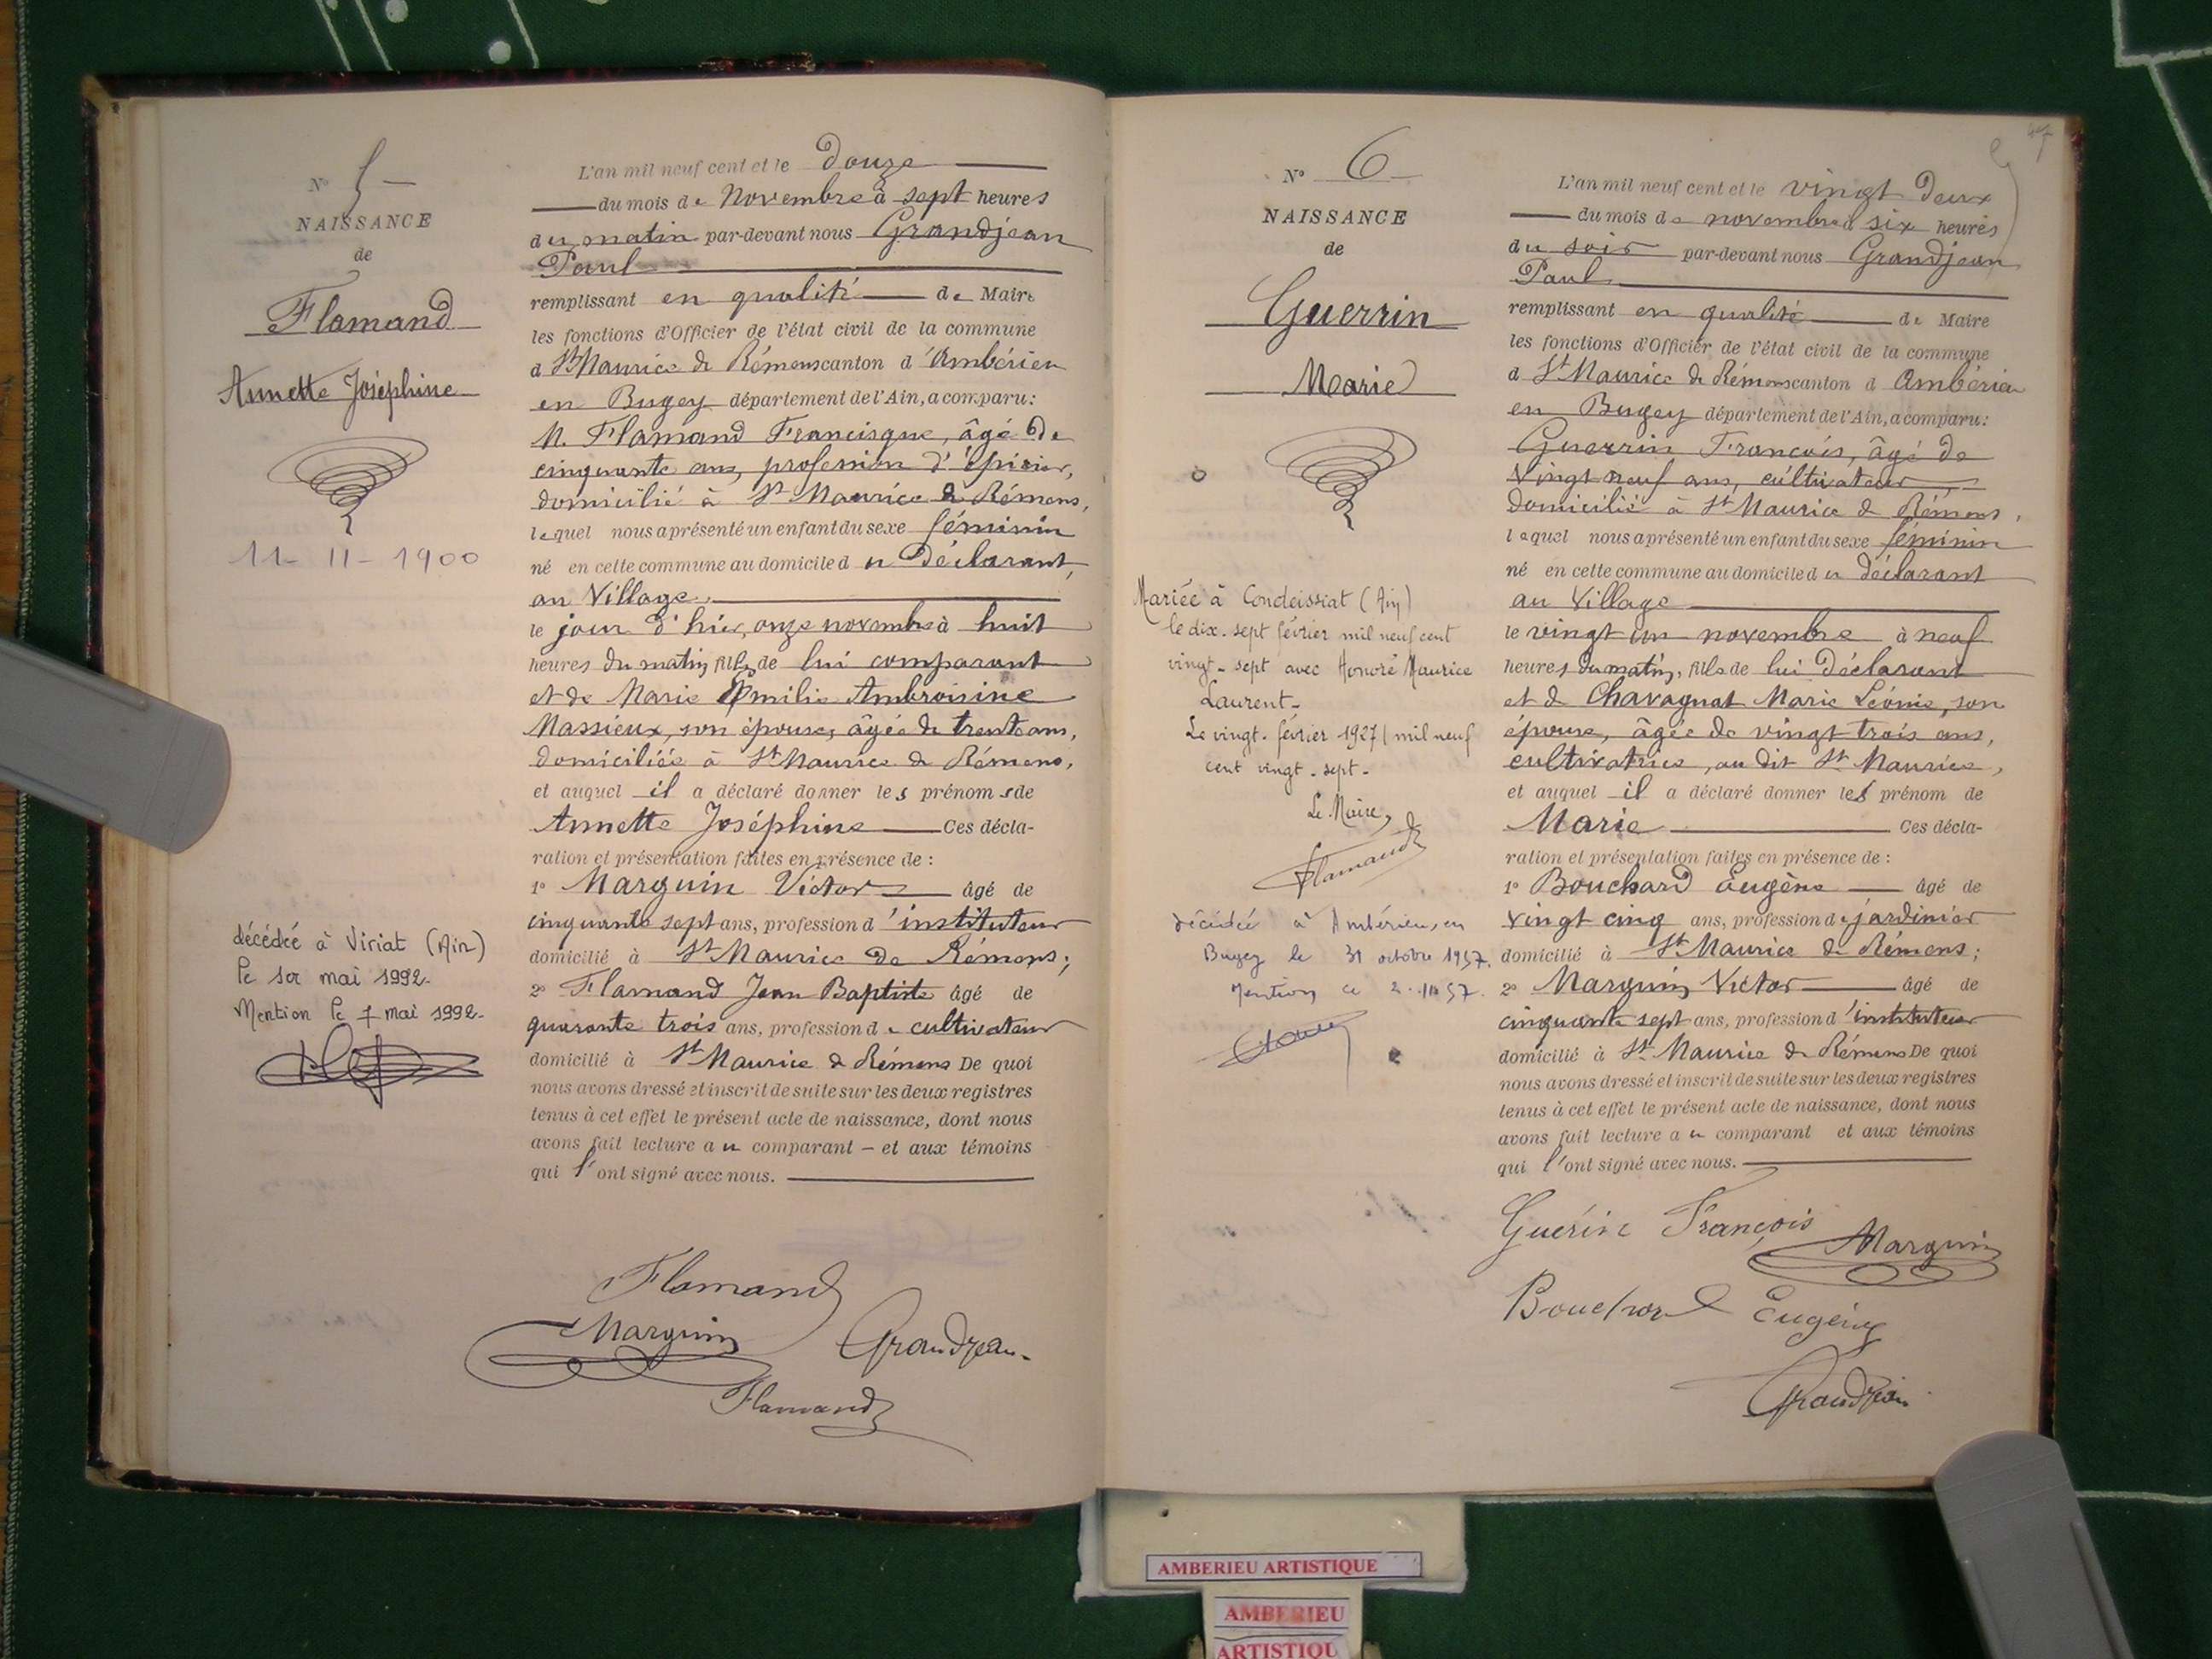 N° 5
NAISSANCE
de
Flamand
Annette Joséphine
11-11-1900
décédée à Viriat (Ain)
le 1er mai 1992.
Mention le 7 mai 1992.
L'an mil neuf cent et le douze
du mois de Novembre à sept heures
du matin par-devant nous Grandjean
Paul
remplissant en qualité de Maire
les fonctions d'Officier de l'état civil de la commune
d St Maurice de Rémens canton d'Ambérieu
en Bugey département de l'Ain, a comparu:
M. Flamand Francisque, âgé de
cinquante ans, profession d'épicier,
domicilié à St Maurice de Rémens,
lequel nous a présenté un enfant du sexe féminin
né en cette commune au domicile du déclarant,
au Village.
le jour d'hier, onze novembre à huit
heures du matin, fille de lui comparant
et de Marie Emilie Ambroisine
Massieux, son épouse, âgée de trente ans,
domiciliée à St Maurice de Rémens,
et auquel il a déclaré donner les prénoms de
Annette Joséphine Ces décla-
ration et présentation faites en présence de :
1° Marguin Victor âgé de
cinquante sept ans, profession d'instituteur
domicilié à St Maurice de Rémens;
2° Flamand Jean Baptiste âgé de
quarante trois ans, profession de cultivateur
domicilié à St Maurice de Rémens De quoi
nous avons dressé et inscrit de suite sur les deux registres
tenus à cet effet le présent acte de naissance, dont nous
avons fait lecture au comparant - et aux témoins
qui l'ont signé avec nous.
Flamand
Marguin Grandjean
Flamand
47
N° 6
NAISSANCE
de
Guerrin
Marie
Mariée à Condeissiat (Ain)
le dix-sept février mil neuf cent
vingt-sept avec Honoré Maurice
Laurent.
Le vingt février 1927 / mil neuf
cent vingt-sept.
Le Maire,
Flamand
décédée à Ambérieu, en
Bugey le 31 octobre 1957.
Mention ce
L'an mil neuf cent et le vingt deux
du mois de novembre à six heures
du soir par-devant nous Grandjean
Paul
remplissant en qualité de Maire
les fonctions d'Officier de l'état civil de la commune
d St Maurice de Rémens canton d Ambérieu
en Bugey département de l'Ain, a comparu:
Guerrin François, âgé de
vingt neuf ans, cultivateur,
domicilié à St Maurice de Rémens,
lequel nous a présenté un enfant du sexe féminin
né en cette commune au domicile du déclarant
au Village
le vingt un novembre à neuf
heures du matin, fille de lui déclarant
et de Chavagnat Marie Léonie, son
épouse, âgée de vingt trois ans,
cultivatrice, au dit St Maurice,
et auquel il a déclaré donner le prénom de
Marie Ces décla-
ration et présentation faites en présence de :
1° Bouchard Eugène âgé de
vingt cinq ans, profession de jardinier
domicilié à St Maurice de Rémens;
2° Marguin Victor âgé de
cinquante sept ans, profession d'instituteur
domicilié à St Maurice de Rémens De quoi
nous avons dressé et inscrit de suite sur les deux registres
tenus à cet effet le présent acte de naissance, dont nous
avons fait lecture au comparant et aux témoins
qui l'ont signé avec nous.
Guérin François Marguin
Bouchard Eugène
Grandjean
AMBERIEU ARTISTIQUE
AMBERIEU
ARTISTIQU